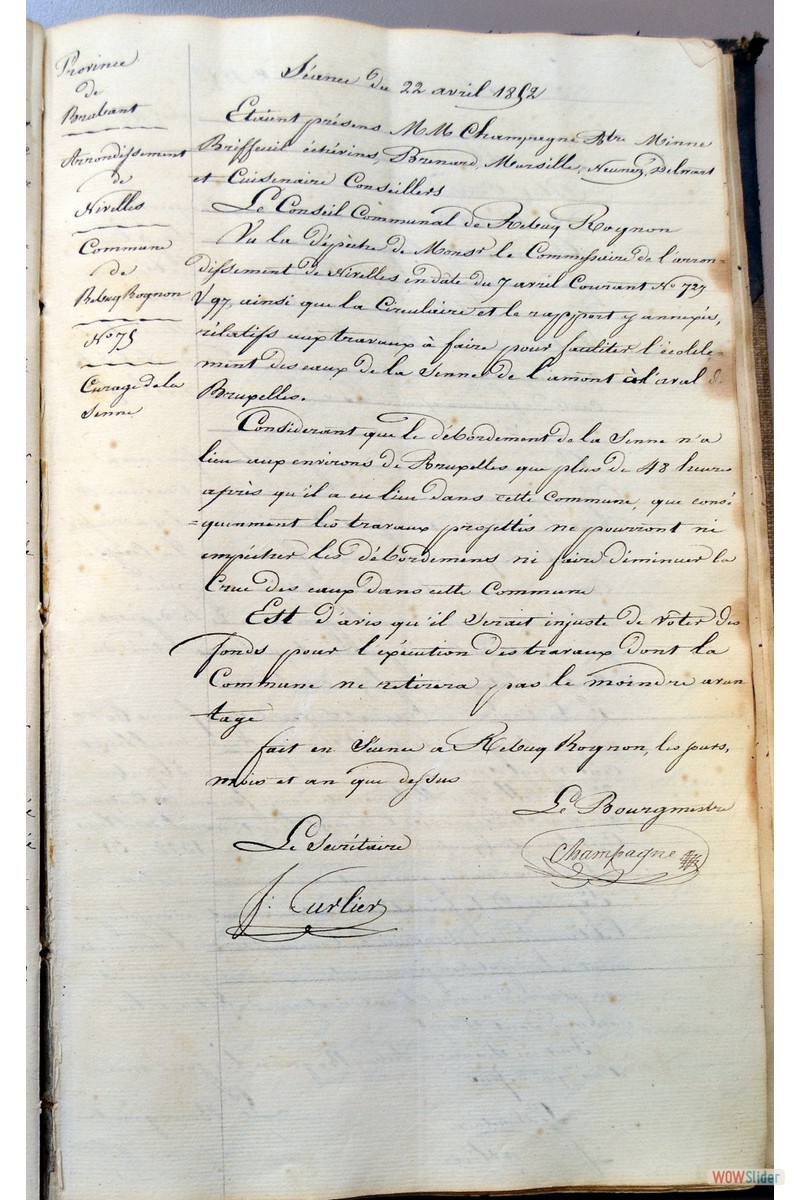 Province
de
Brabant
Arrondissement
de
Nivelles
Commune
de
Rebecq Rognon
N° 75
Curage de la
Senne
Séance du 22 avril 1852
Etaient présens M M Champagne Btre Minne
Briffeuil échévins, Brenard, Marsille, Delwart
et Cuisenaire Conseillers
Le Conseil Communal de Rebecq Rognon
Vu la dépêche de Monsr le Commissaire de l'arron-
dissement de Nivelles en date du 7 avril Courant N° 727
97, ainsi que la Circulaire et le rapport y annexés,
rélatifs aux travaux à faire pour faciliter l'écoule-
ment des eaux de la Senne de l'amont à l'aval de
Bruxelles.
Considerant que le débordement de la Senne n'a
lieu aux environs de Bruxelles que plus de 48 heures
après qu'il a eu lieu dans cette Commune, que consé
=quemment les travaux projettés ne pourront ni
empécher les débordemens ni faire diminuer la
Crue des eaux dans cette Commune
Est d'avis qu'il serait injuste de voter des
fonds pour l'exécution des travaux dont la
Commune ne retirera pas le moindre avan
tage
fait en Séance a Rebecq Rognon, les jours,
mois et an que dessus
Le Bourgmestre
Champagne
Le Secrétaire
J: Curlier
WOWSlider